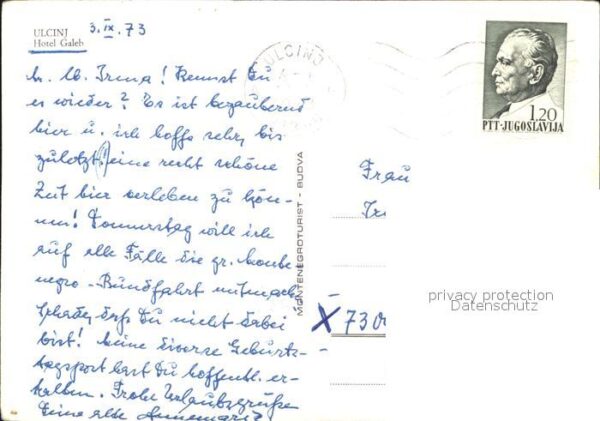 ULCINJ
Hotel Galeb
3. IX. 73
ULCINJ
1.20
PTT-JUGOSLAVIJA
M. lb. Irma! Kennst Du
es wieder? Es ist bezaubernd
hier u. ich hoffe sehr, bis
zuletzt eine recht schöne
Zeit hier verleben zu kön-
nen! Donnerstag will ich
auf alle Fälle die gr. Monte-
negro-Rundfahrt mitmachen
Schade, daß Du nicht dabei
bist! Meine Geburts-
tagspost hast Du hoffentl. er-
halten. Frohe Urlaubsgrüße
Deine alte Annemarie
MONTENEGROTURIST - BUDVA
Frau
X 730
privacy protection
Datenschutz